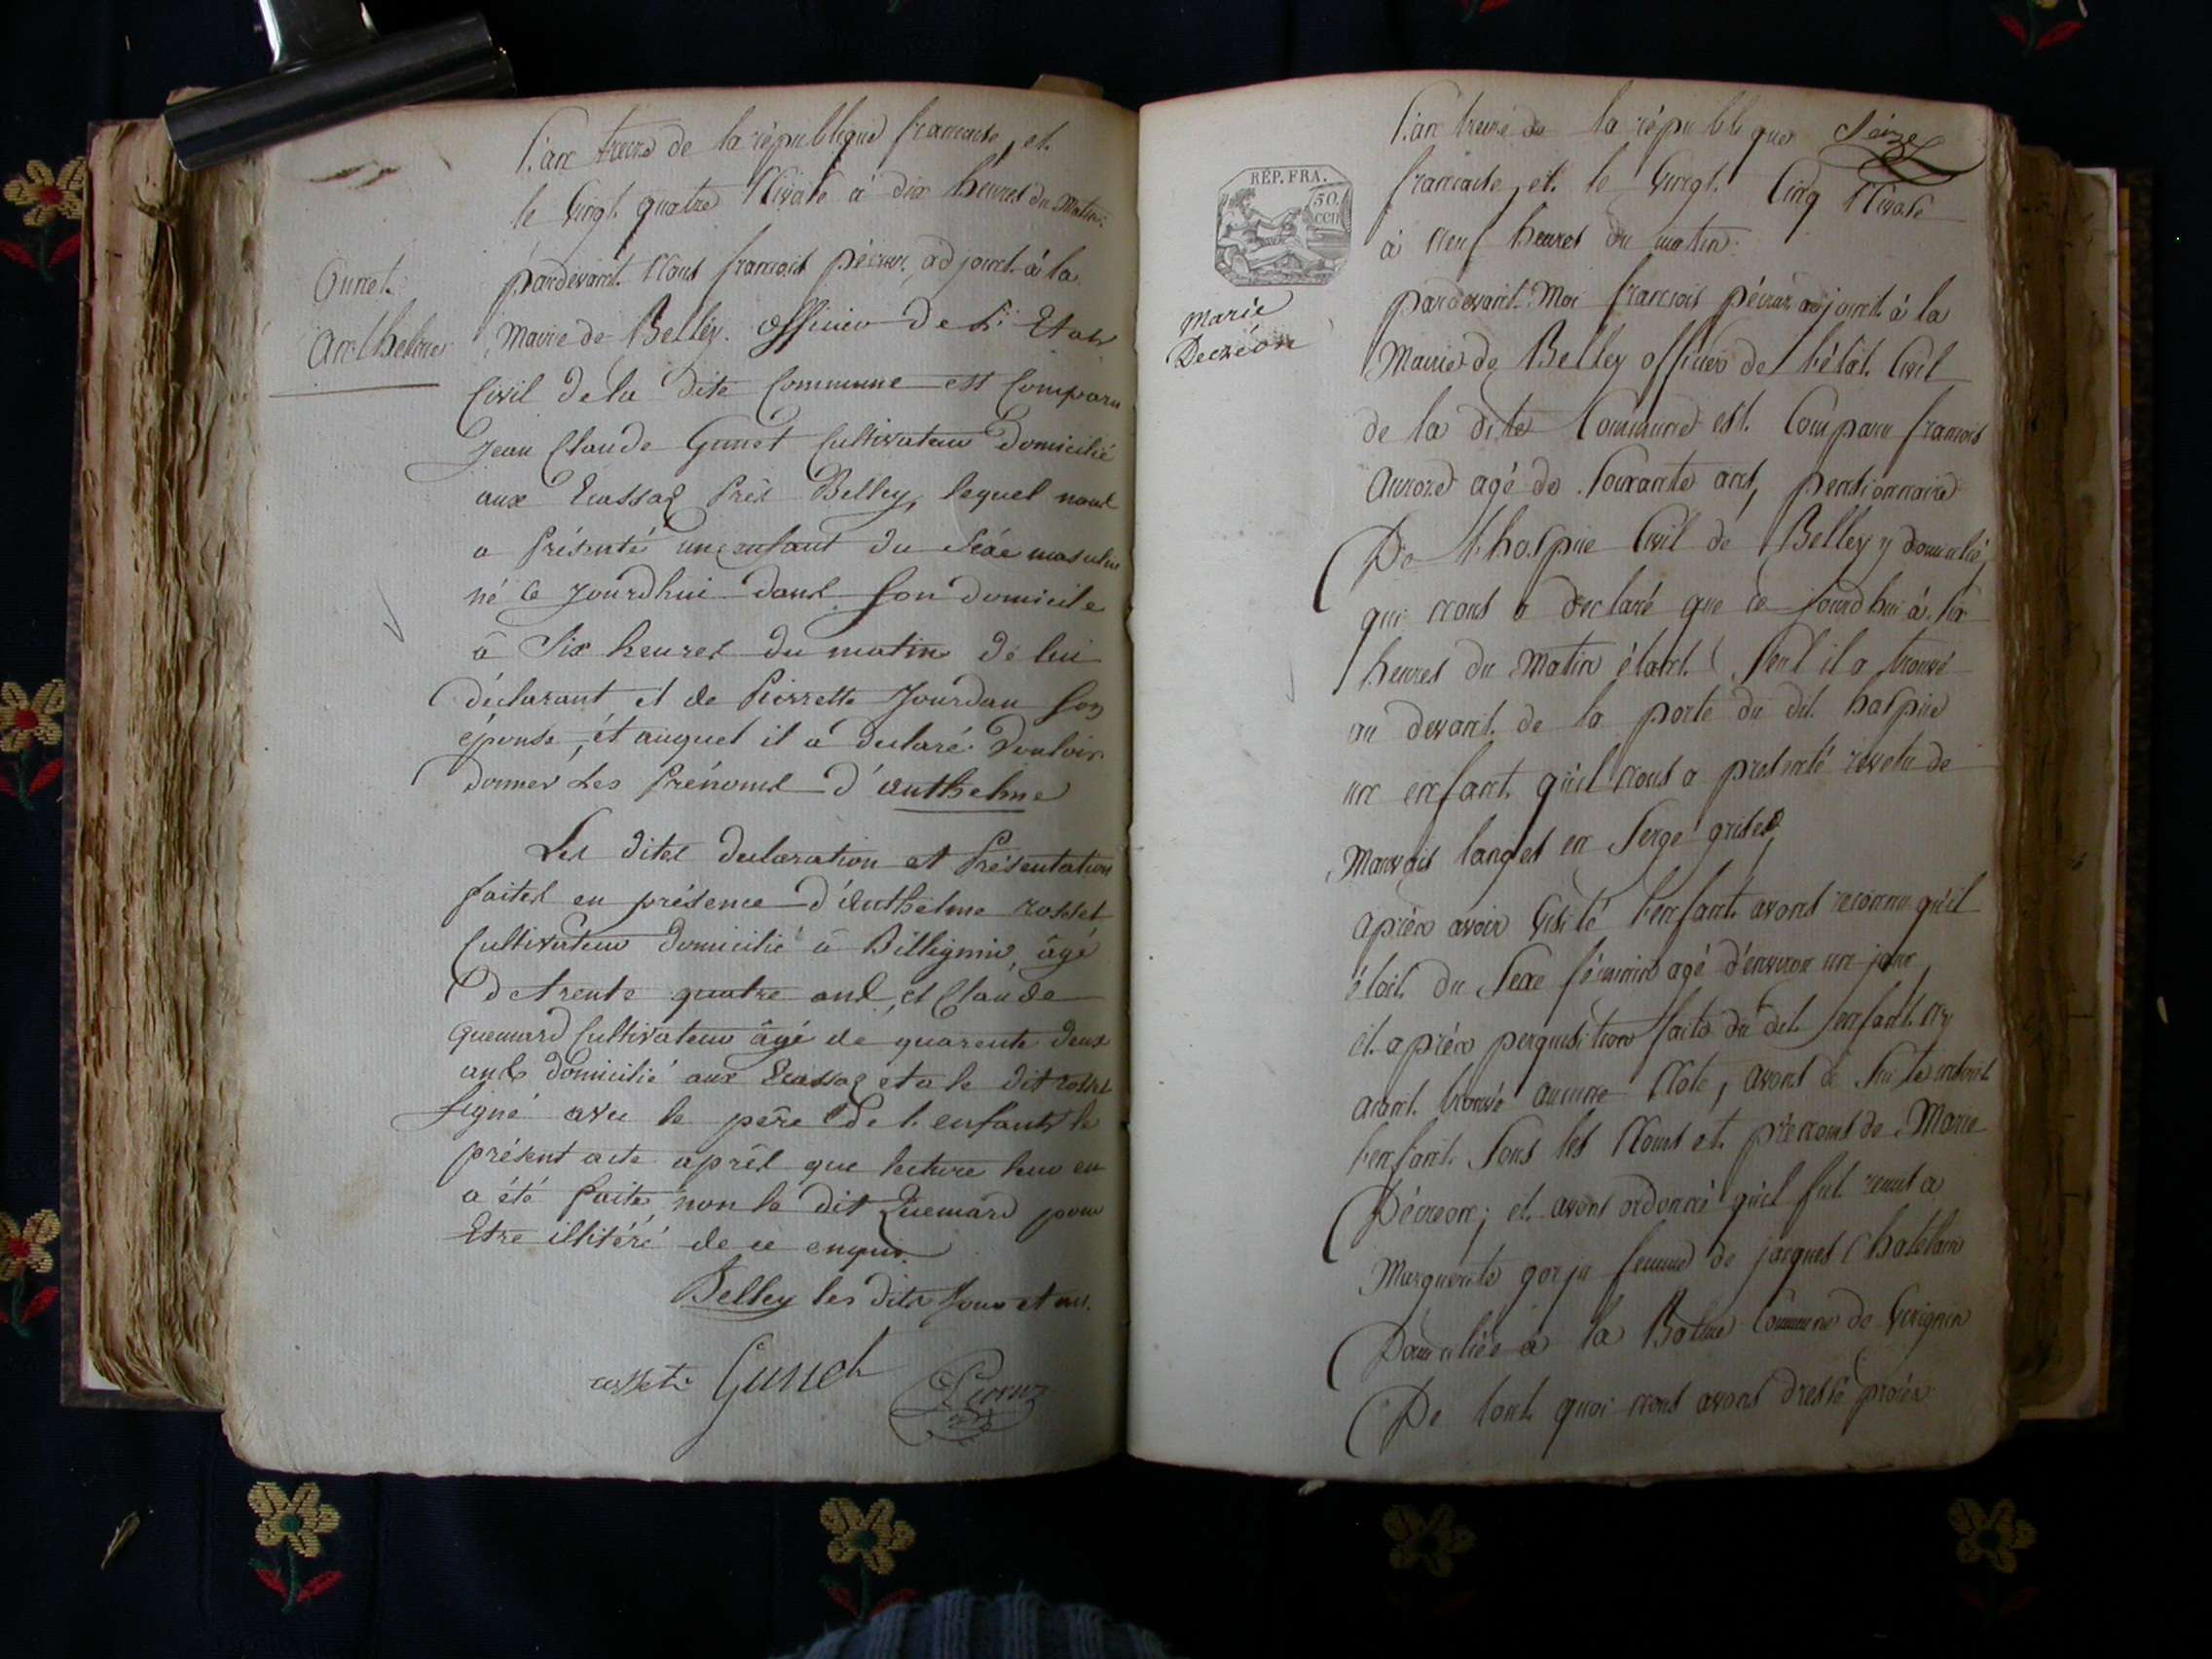 l'an treize de la république francaise, et
le vingt quatre Nivose à dix heures du Matin.
pardevant Nous francois pécruz, adjoint à la
Gunet
Anthelme
Mairie de Belley. officier de L'Etat
Civil de la dite Commune est Comparu
Jean Claude Gunet Cultivateur Domicilié
aux Ecassaz Près Belley, lequel nous
a Présenté un enfant du Sexe masculin
né ce Jourdhui dans son domicile
à Six heures du matin de lui
déclarant et de Pierrette Jourdan son
épouse, et auquel il a declaré Vouloir
donner Les Prénoms d'anthelme
Les dites declaration et Présentation
faites en présence d'Anthelme rosset
Cultivateur domicilié à Billignin, âgé
de trente quatre ans, et Claude
Quemard Cultivateur âgé de quarente deux
ans domicilié aux Ecassaz et a le dit rosset
signé avec le père de l'enfant le
présent acte après que lecture leur en
a été faite, non le dit Quemard pour
Etre illitéré de ce enquis
Belley les dits Jour et an.
rosset Gunet Pécruz
l'an treize de la république Seize
francaise, et le Vingt Cinq Nivose
à neuf heures du matin.
RÉP. FRA.
50
cen
Marie
Decréon
pardevant Moi francois pécruz adjoint à la
Mairie de Belley officier de l'état Civil
de la dite Commune est Comparu francois
Aurore agé de Soixante ans, pensionnaire
De l'hospice Civil de Belley y domicilié,
qui nous a declaré que ce jourdhui à six
heures du Matin étant seul il a trouvé
au devant de la porte du dit hospice
un enfant qu'il nous a presenté revetu de
Mauvais langes en Serge grise,
après avoir Visité l'enfant avons reconnu qu'il
étoit du Sexe féminin agé d'environ un jour,
et après perquisition faite du dit enfant n'y
aiant trouvé aucune Note, avons de suite inscrit
l'enfant Sous les Noms et prénoms de Marie
Décréon; et avons ordonné qu'il fut remis a
Marguerite gorju femme de jacques Chatelain
Domiciliée à la Balme Commune de Virignin
De tout quoi nous avons dressé procès